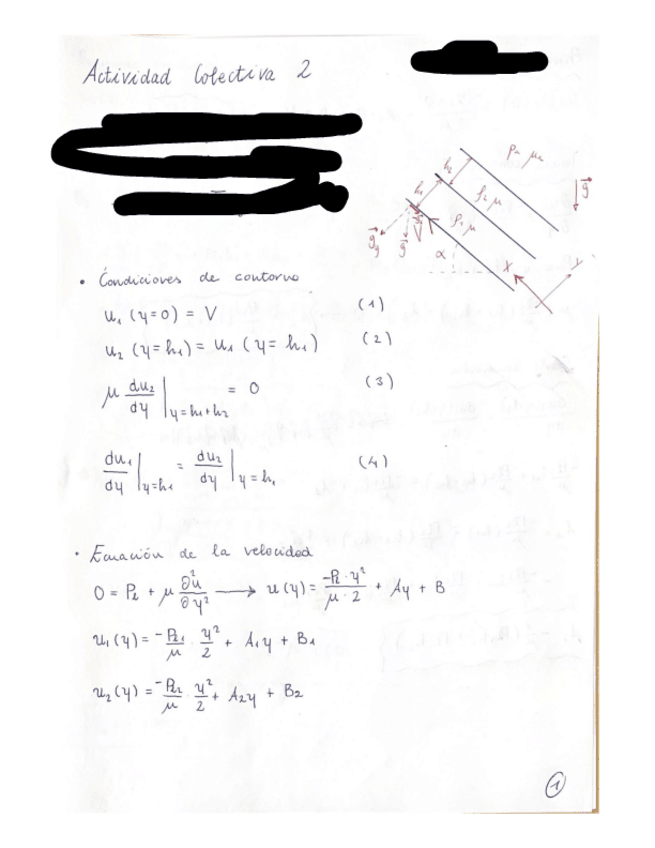 Actividad Colectiva 2
ρa μa
h2
h1
ρ2 μ
ρ1 μ
g⃗
g⃗y
g⃗
V
α
X
Y
• Condiciones de contorno
u1 (y=0) = V (1)
u2 (y=h1) = u1 (y=h1) (2)
μ du2/dy |y=h1+h2 = 0 (3)
du1/dy |y=h1 = du2/dy |y=h1 (4)
• Ecuación de la velocidad
0 = Pl + μ ∂²u/∂y² ⟶ u(y) = -Pl·y²/μ·2 + Ay + B
u1(y) = -Pl1/μ · y²/2 + A1y + B1
u2(y) = -Pl2/μ · y²/2 + A2y + B2
1